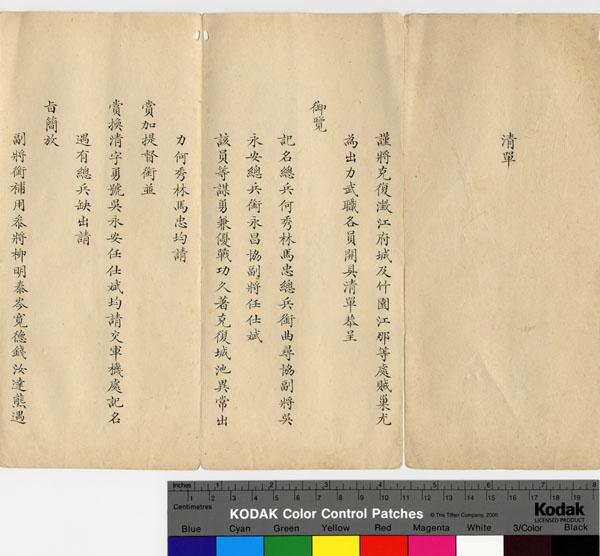 清單
謹將克復澂江府城及竹園江那等處賊巢尤
為出力武職各員開具清單恭呈
御覽
記名總兵何秀林馬忠總兵銜曲尋協副將吳
永安總兵銜永昌協副將任仕斌
該員等謀勇兼優戰功久著克復城池異常出
力何秀林馬忠均請
賞加提督銜並
賞換清字勇號吳永安任仕斌均請交軍機處記名
遇有總兵缺出請
旨簡放
副將銜補用叅將柳明泰岑寬德錢汝達熊遇
Inches 1 2 3 4 5 6 7 8
Centimetres 1 2 3 4 5 6 7 8 9 10 11 12 13 14 15 16 17 18 19
KODAK Color Control Patches © The Tiffen Company, 2000 Kodak
LICENSED PRODUCT
Blue Cyan Green Yellow Red Magenta White 3/Color Black